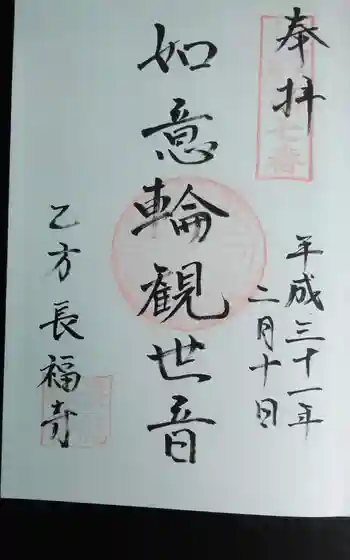 奉拝
平成三十一年
二月十日
如意輪観世音
乙方 長福寺